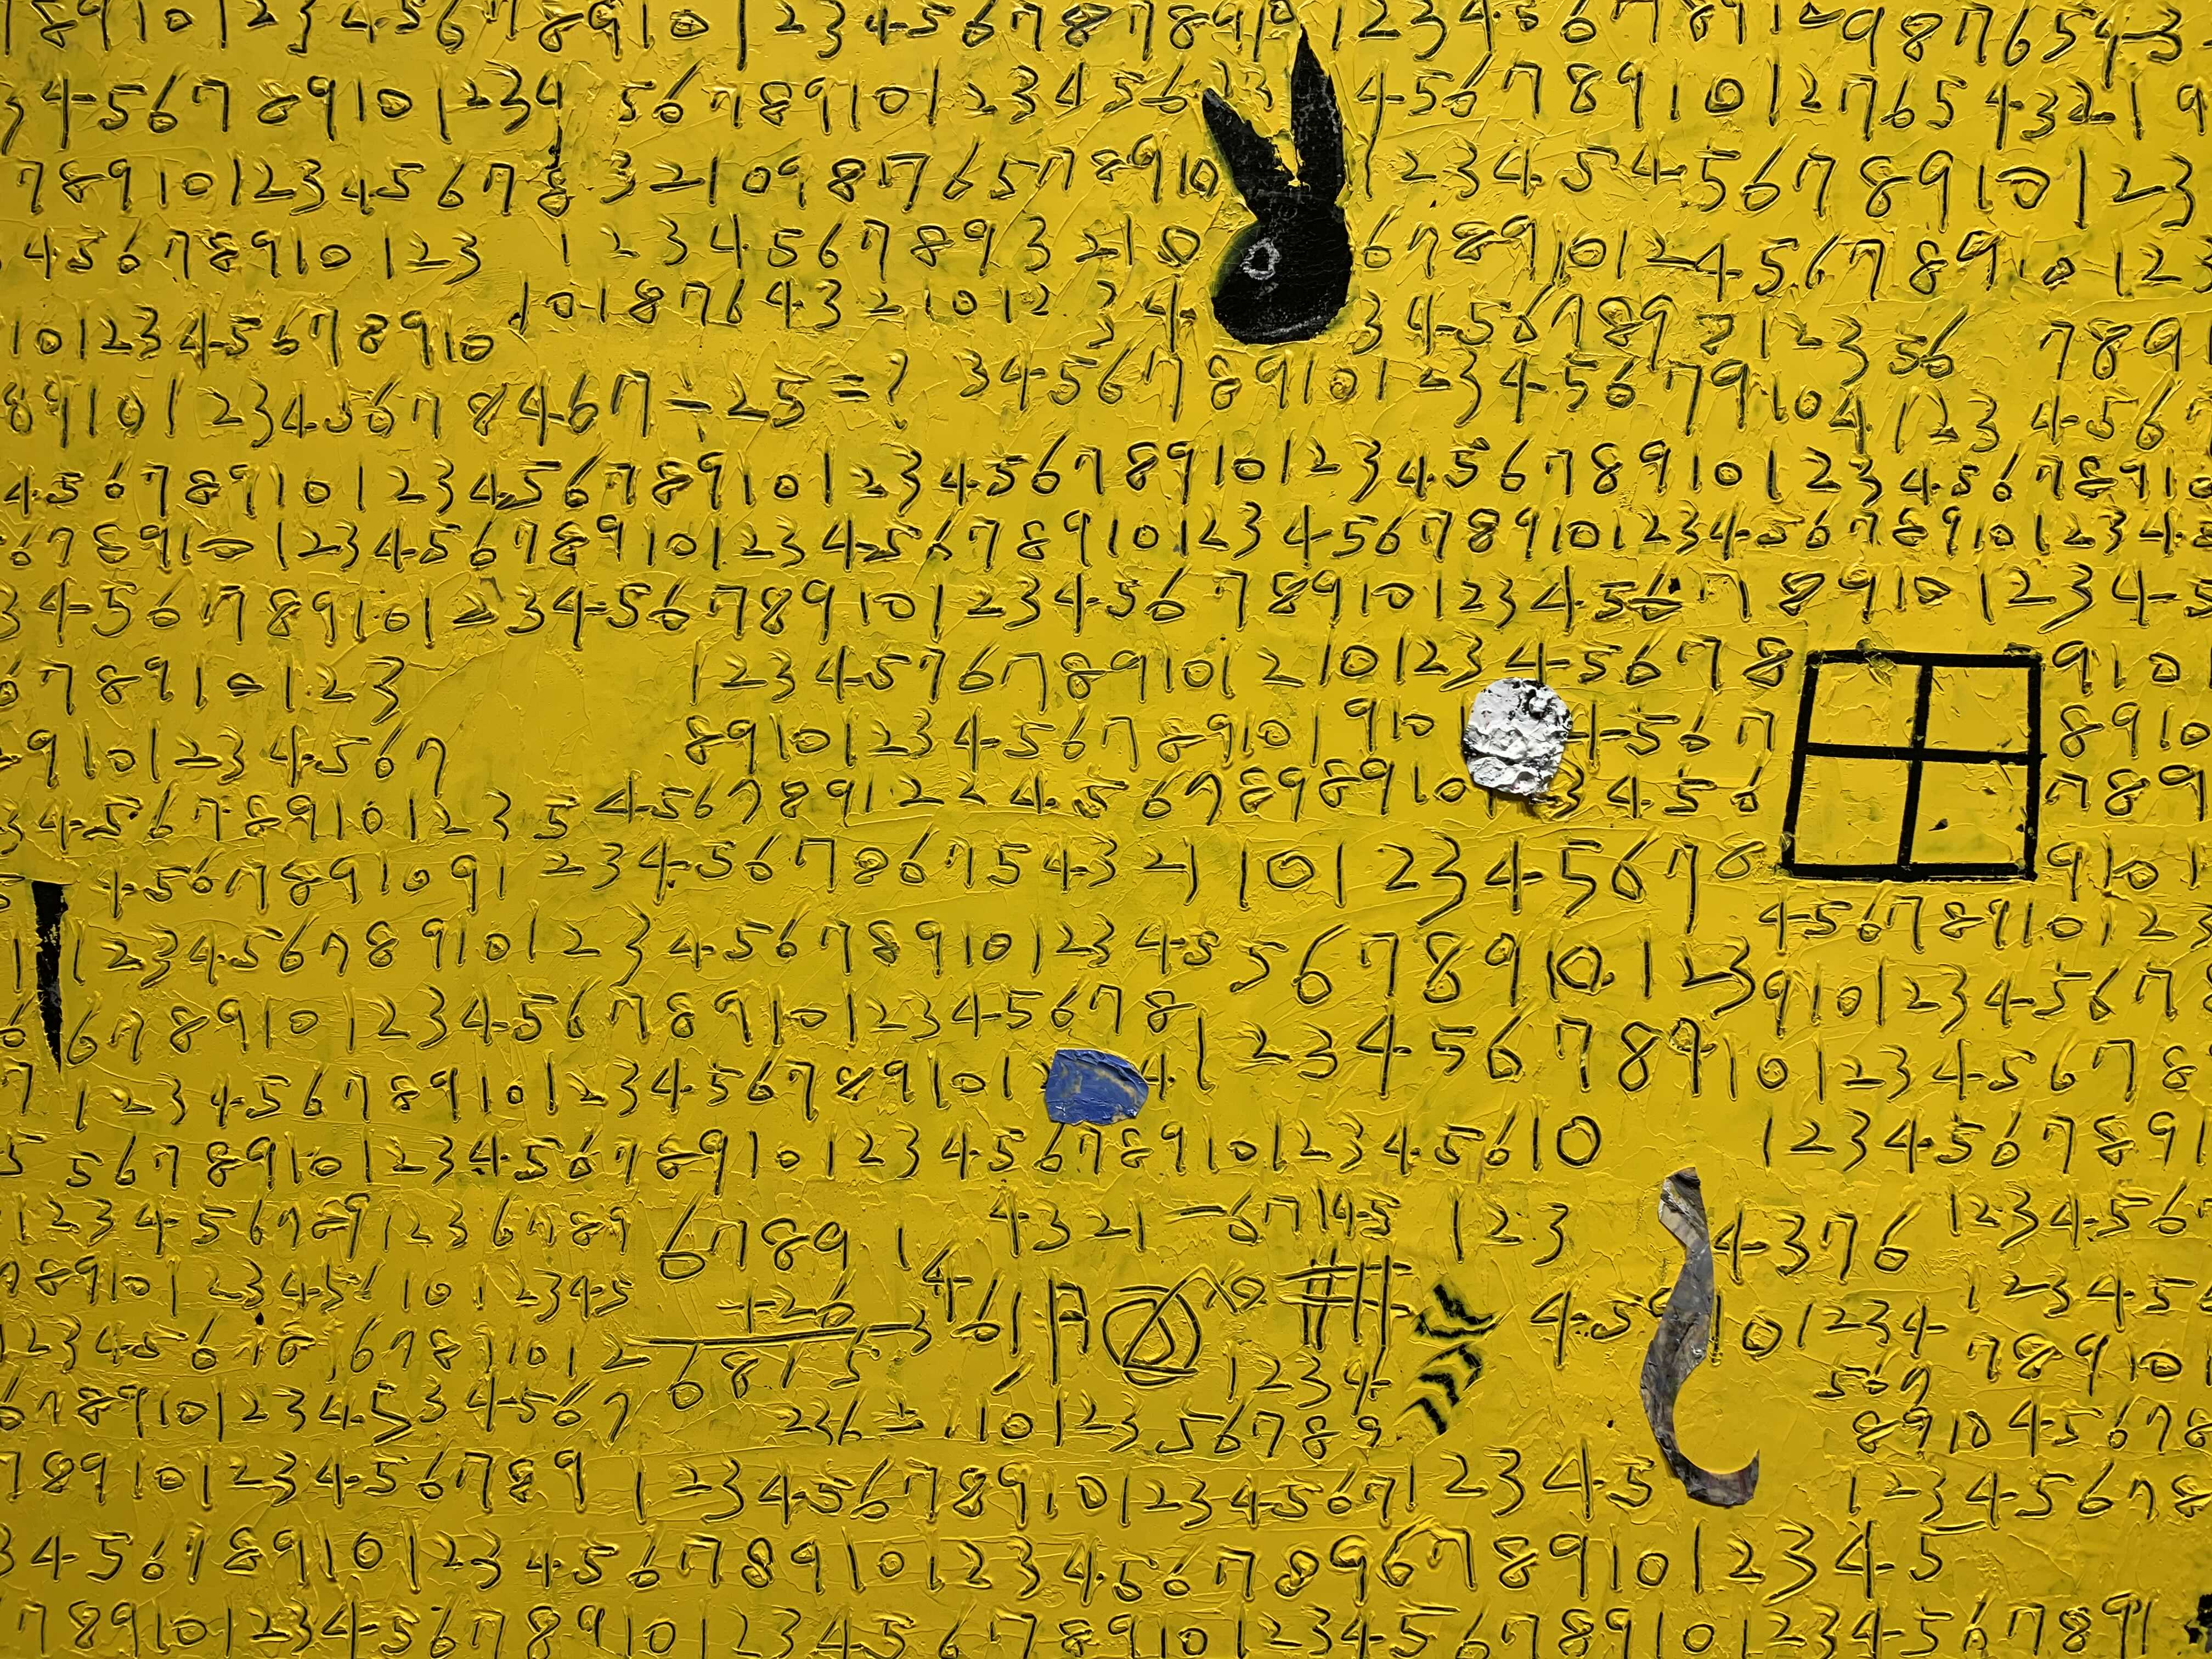 7 8 9 10 1 2 3 4 5 6 7 8 9 10 1 2 3 4 5 6 7 8 7 8 9 1 0 1 2 3 4 5 6 7 8 9 1 9 8 7 6 5 4 3
3 4 5 6 7 8 9 10 1 2 3 4 5 6 7 8 9 10 1 2 3 4 5 6 4 5 6 7 8 9 10 1 2 7 6 5 4 3 2 1 9
7 8 9 10 1 2 3 4 5 6 7 8 3 2 1 0 9 8 7 6 5 7 8 9 10 1 2 3 4 5 4 5 6 7 8 9 10 1 2 3
4 5 6 7 8 9 10 1 2 3 1 2 3 4 5 6 7 8 9 3 2 1 0 6 7 8 9 10 1 2 4 5 6 7 8 9 10 1 2 3
10 1 2 3 4 5 6 7 8 9 10 10 1 8 7 6 4 3 2 10 1 2 3 4 3 4 5 6 7 8 9 1 2 3 5 6 7 8 9
8 9 10 1 2 3 4 5 6 7 8 4 6 7 ÷ 2 5 = ? 3 4 5 6 7 8 9 10 1 2 3 4 5 6 7 9 10 4 1 2 3 4 5 6
4 5 6 7 8 9 10 1 2 3 4 5 6 7 8 9 10 1 2 3 4 5 6 7 8 9 10 1 2 3 4 5 6 7 8 9 10 1 2 3 4 5 6 7 8 9 10
6 7 8 9 10 1 2 3 4 5 6 7 8 9 10 1 2 3 4 5 6 7 8 9 10 1 2 3 4 5 6 7 8 9 10 1 2 3 4 5 6 7 8 9 10 1 2 3 4 5
3 4 5 6 7 8 9 10 1 2 3 4 5 6 7 8 9 10 1 2 3 4 5 6 7 8 9 10 1 2 3 4 5 6 7 8 9 10 1 2 3 4 5
6 7 8 9 10 1 2 3 1 2 3 4 5 7 6 7 8 9 10 1 2 10 1 2 3 4 5 6 7 8 9 10
9 10 1 2 3 4 5 6 7 8 9 10 1 2 3 4 5 6 7 8 9 10 1 9 10 4 5 6 7 8 9 10
3 4 5 6 7 8 9 10 1 2 3 5 4 5 6 7 8 9 1 2 2 4 5 6 7 8 9 8 9 10 3 4 5 6 7 8 9
4 5 6 7 8 9 10 9 1 2 3 4 5 6 7 8 6 7 5 4 3 2 1 10 1 2 3 4 5 6 7 8 9 10 1
1 1 2 3 4 5 6 7 8 9 10 1 2 3 4 5 6 7 8 9 10 1 2 3 4 5 5 6 7 8 9 10 1 2 3 4 5 6 7 8 9 10 1 2 3
6 6 7 8 9 10 1 2 3 4 5 6 7 8 9 10 1 2 3 4 5 6 7 8 1 2 3 4 5 6 7 8 9 9 10 1 2 3 4 5 6 7
7 1 2 3 4 5 6 7 8 9 10 1 2 3 4 5 6 7 8 9 10 1 4 1 10 1 2 3 4 5 6 7 8
5 5 6 7 8 9 10 1 2 3 4 5 6 7 8 9 10 1 2 3 4 5 6 7 8 9 10 1 2 3 4 5 6 10 1 2 3 4 5 6 7 8 9 1
1 2 3 4 5 6 7 8 9 1 2 3 6 7 8 9 6 7 8 9 1 4 3 2 1 - 6 7 1 4 5 1 2 3 4 3 7 6 1 2 3 4 5 6
7 8 9 10 1 2 3 4 5 10 1 2 3 4 5 + 2 6 4 6 1 A # 4 5 1 0 1 2 3 4 1 2 3 4 5
1 2 3 4 5 6 6 7 8 9 10 1 2 6 8 1 5 1 2 3 4 7 8 9 10 1
6 7 8 9 10 1 2 3 4 5 3 4 5 6 7 2 3 6 10 1 2 3 5 6 7 8 9 5 6 7 8 9 10 4 5 6 7 8
7 8 9 10 1 2 3 4 5 6 7 8 9 1 2 3 4 5 6 7 8 9 10 1 2 3 4 5 6 7 1 2 3 4 5 1 2 3 4 5 6 7 8
3 4 5 6 7 8 9 10 1 2 3 4 5 6 7 8 9 10 1 2 3 4 5 6 7 8 9 6 7 8 9 10 1 2 3 4 5
7 8 9 10 1 2 3 4 5 6 7 8 9 10 1 2 3 4 5 6 7 8 9 10 1 2 3 4 5 6 7 8 9 10 1 2 3 4 5 6 7 8 9 1